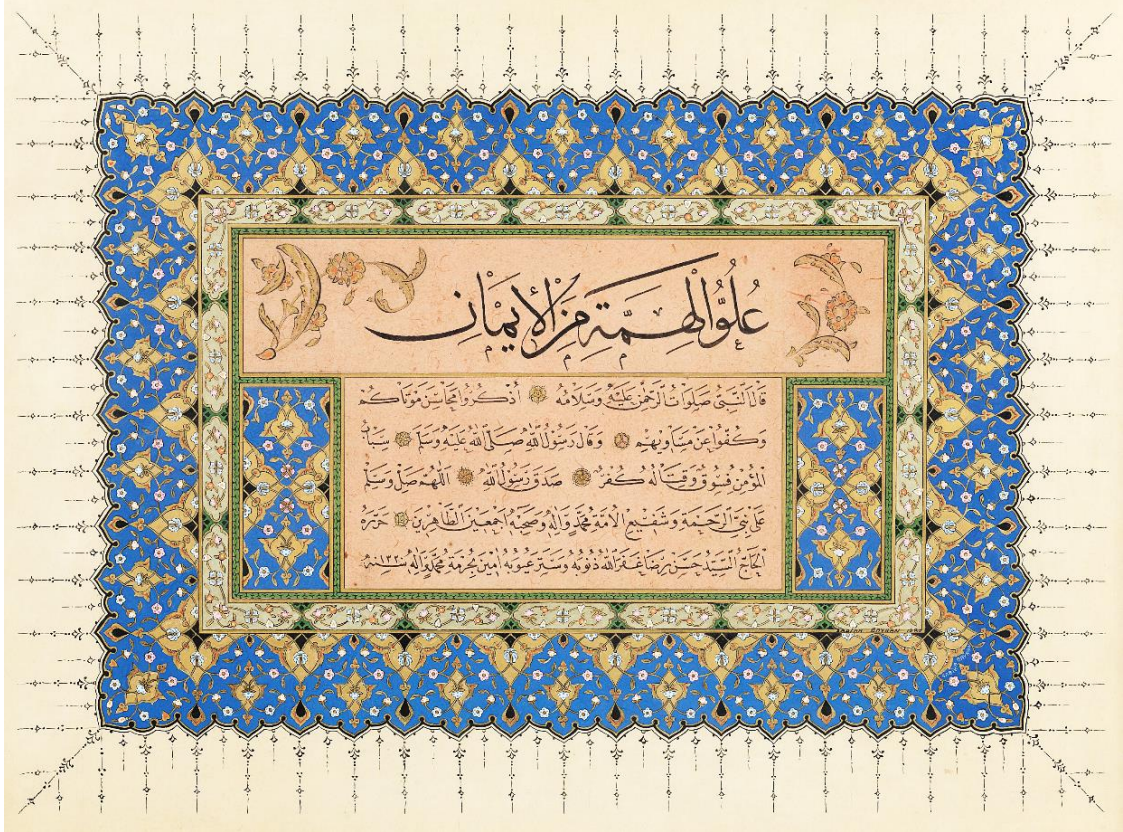 عُلُوُّ الْهِمَّةِ مِنَ الْإِيمَانِ
قَالَ النَّبِيُّ صَلَوَاتُ الرَّحْمٰنِ عَلَيْهِ وَسَلَامُهُ أُذْكُرُوا مَحَاسِنَ مَوْتَاكُمْ
وَكُفُّوا عَنْ مَسَاوِيهِمْ وَقَالَ رَسُولُ اللّٰهِ صَلَّى اللّٰهُ عَلَيْهِ وَسَلَّمَ سِبَابُ
الْمُؤْمِنِ فُسُوقٌ وَقِتَالُهُ كُفْرٌ صَدَقَ رَسُولُ اللّٰهِ اَللّٰهُمَّ صَلِّ وَسَلِّمْ
عَلَى نَبِيِّ الرَّحْمَةِ وَشَفِيعِ الْأُمَّةِ مُحَمَّدٍ وَآلِهِ وَصَحْبِهِ أَجْمَعِينَ الطَّاهِرِينَ حَرَّرَهُ
الْحَاجُّ السَّيِّدُ حَسَنْ رِضَا غَفَرَ اللّٰهُ ذُنُوبَهُ وَسَتَرَ عُيُوبَهُ آمِينَ بِحُرْمَةِ مُحَمَّدٍ وَآلِهِ سنة